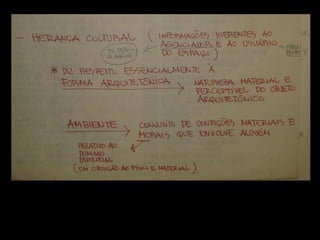 - HERANÇA CULTURAL (INFORMAÇÕES INERENTES AO
AGENCIADOR E AO USUÁRIO
DO ESPAÇO)
* DIZ RESPEITO ESSENCIALMENTE À
FORMA ARQUITETÔNICA > NATUREZA MATERIAL E
PERCEPTÍVEL DO OBJETO
ARQUITETÔNICO
AMBIENTE > CONJUNTO DE CONDIÇÕES MATERIAIS E
MORAIS QUE ENVOLVE ALGUÉM
RELATIVO AO
DOMÍNIO
ESPIRITUAL
(EM OPOSIÇÃO AO FÍSICO E MATERIAL)